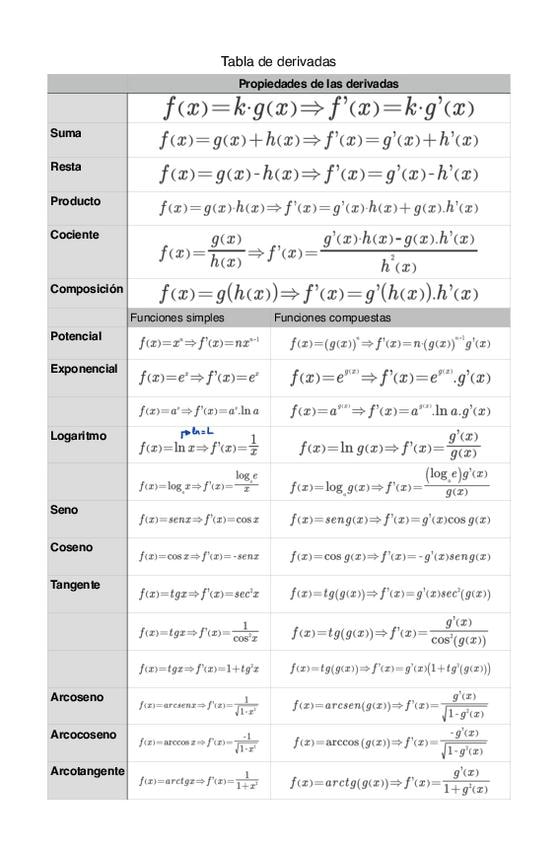 Tabla de derivadas
Propiedades de las derivadas
f(x)=k·g(x)⇒f'(x)=k·g'(x)
Suma f(x)=g(x)+h(x)⇒f'(x)=g'(x)+h'(x)
Resta f(x)=g(x)-h(x)⇒f'(x)=g'(x)-h'(x)
Producto f(x)=g(x)·h(x)⇒f'(x)=g'(x)·h(x)+g(x).h'(x)
Cociente f(x)=g(x)/h(x)⇒f'(x)=(g'(x)·h(x)-g(x).h'(x))/h²(x)
Composición f(x)=g(h(x))⇒f'(x)=g'(h(x)).h'(x)
Funciones simples Funciones compuestas
Potencial f(x)=xⁿ⇒f'(x)=nxⁿ⁻¹ f(x)=(g(x))ⁿ⇒f'(x)=n·(g(x))ⁿ⁻¹g'(x)
Exponencial f(x)=eˣ⇒f'(x)=eˣ f(x)=e^g(x)⇒f'(x)=e^g(x).g'(x)
f(x)=aˣ⇒f'(x)=aˣ.ln a f(x)=a^g(x)⇒f'(x)=a^g(x).ln a.g'(x)
Logaritmo f(x)=ln x⇒f'(x)=1/x f(x)=ln g(x)⇒f'(x)=g'(x)/g(x)
f(x)=logₐx⇒f'(x)=logₐe/x f(x)=logₐg(x)⇒f'(x)=(logₐe)g'(x)/g(x)
Seno f(x)=senx⇒f'(x)=cos x f(x)=seng(x)⇒f'(x)=g'(x)cos g(x)
Coseno f(x)=cos x⇒f'(x)=-senx f(x)=cos g(x)⇒f'(x)=-g'(x)seng(x)
Tangente f(x)=tgx⇒f'(x)=sec²x f(x)=tg(g(x))⇒f'(x)=g'(x)sec²(g(x))
f(x)=tgx⇒f'(x)=1/cos²x f(x)=tg(g(x))⇒f'(x)=g'(x)/cos²(g(x))
f(x)=tgx⇒f'(x)=1+tg²x f(x)=tg(g(x))⇒f'(x)=g'(x)(1+tg²(g(x)))
Arcoseno f(x)=arcsenx⇒f'(x)=1/√(1-x²) f(x)=arcsen(g(x))⇒f'(x)=g'(x)/√(1-g²(x))
Arcocoseno f(x)=arccos x⇒f'(x)=-1/√(1-x²) f(x)=arccos(g(x))⇒f'(x)=-g'(x)/√(1-g²(x))
Arcotangente f(x)=arctgx⇒f'(x)=1/(1+x²) f(x)=arctg(g(x))⇒f'(x)=g'(x)/(1+g²(x))